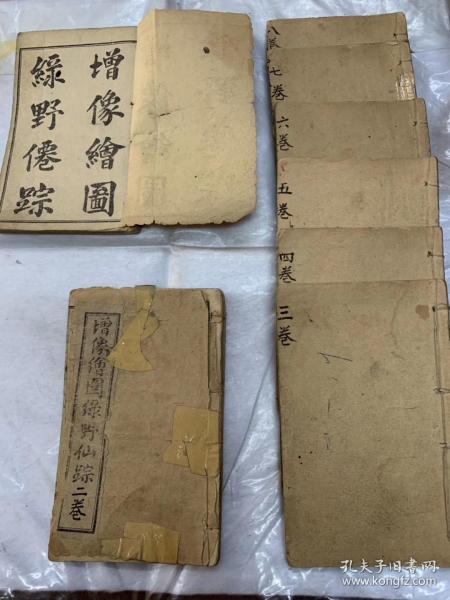 增像繪圖
綠野僊踪
增像繪圖綠野仙踪二巻
八巻
七巻
六巻
五巻
四巻
三巻
孔夫子旧书网
www.kongfz.com